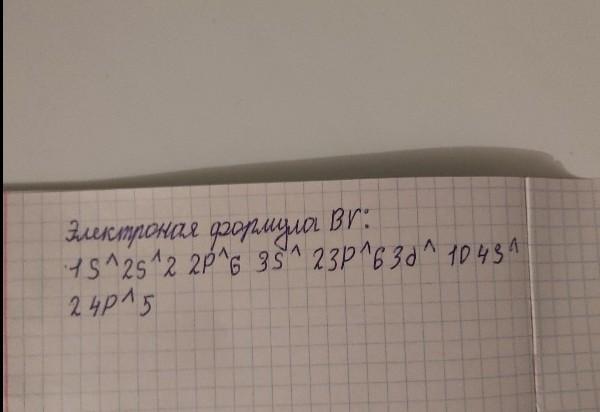 Электроная формула Br:
1S^2S^2 2P^6 3S^ 23P^63d^ 104S^
24P^5